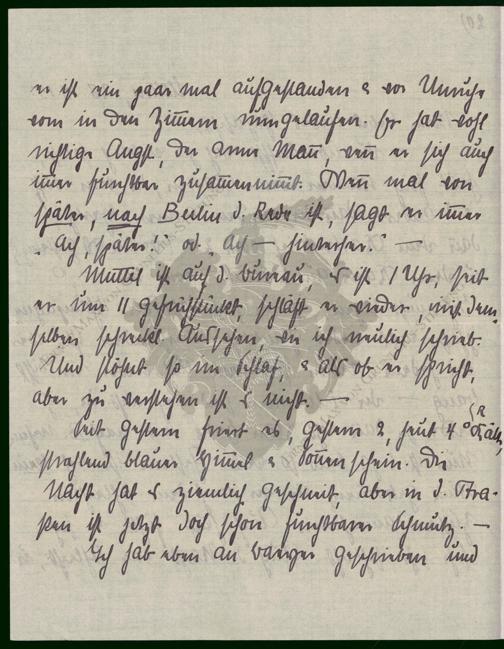 er ist ein paar mal aufgestanden & vor Unruhe
vorn in den Zimmern rumgelaufen. Er hat wohl
richtige Angst, der arme Mann, wenn er sich auch
immer furchtbar zusammennimmt. Wenn mal von
später, nach Berlin d. Rede ist, sagt er immer
„Ach, später!" od. „Ach — hinterher." —
Muttel ist auf d. bureau, es ist 1 Uhr, seit
er um 11 gefrühstückt, schläft er wieder, mit dem
selben schreckl. Aussehen, wie ich neulich schrieb.
Und stöhnt so im Schlaf, & als ob er spricht,
aber zu verstehen ist es nicht. —
Seit gestern friert es, gestern 2, heut 4° R Kälte,
strahlend blauer Himmel & Sonnenschein. Die
Nacht hat es ziemlich geschneit, aber in d. Stra-
ßen ist jetzt doch schon furchtbarer Schmutz. —
Ich hab eben an geschrieben und